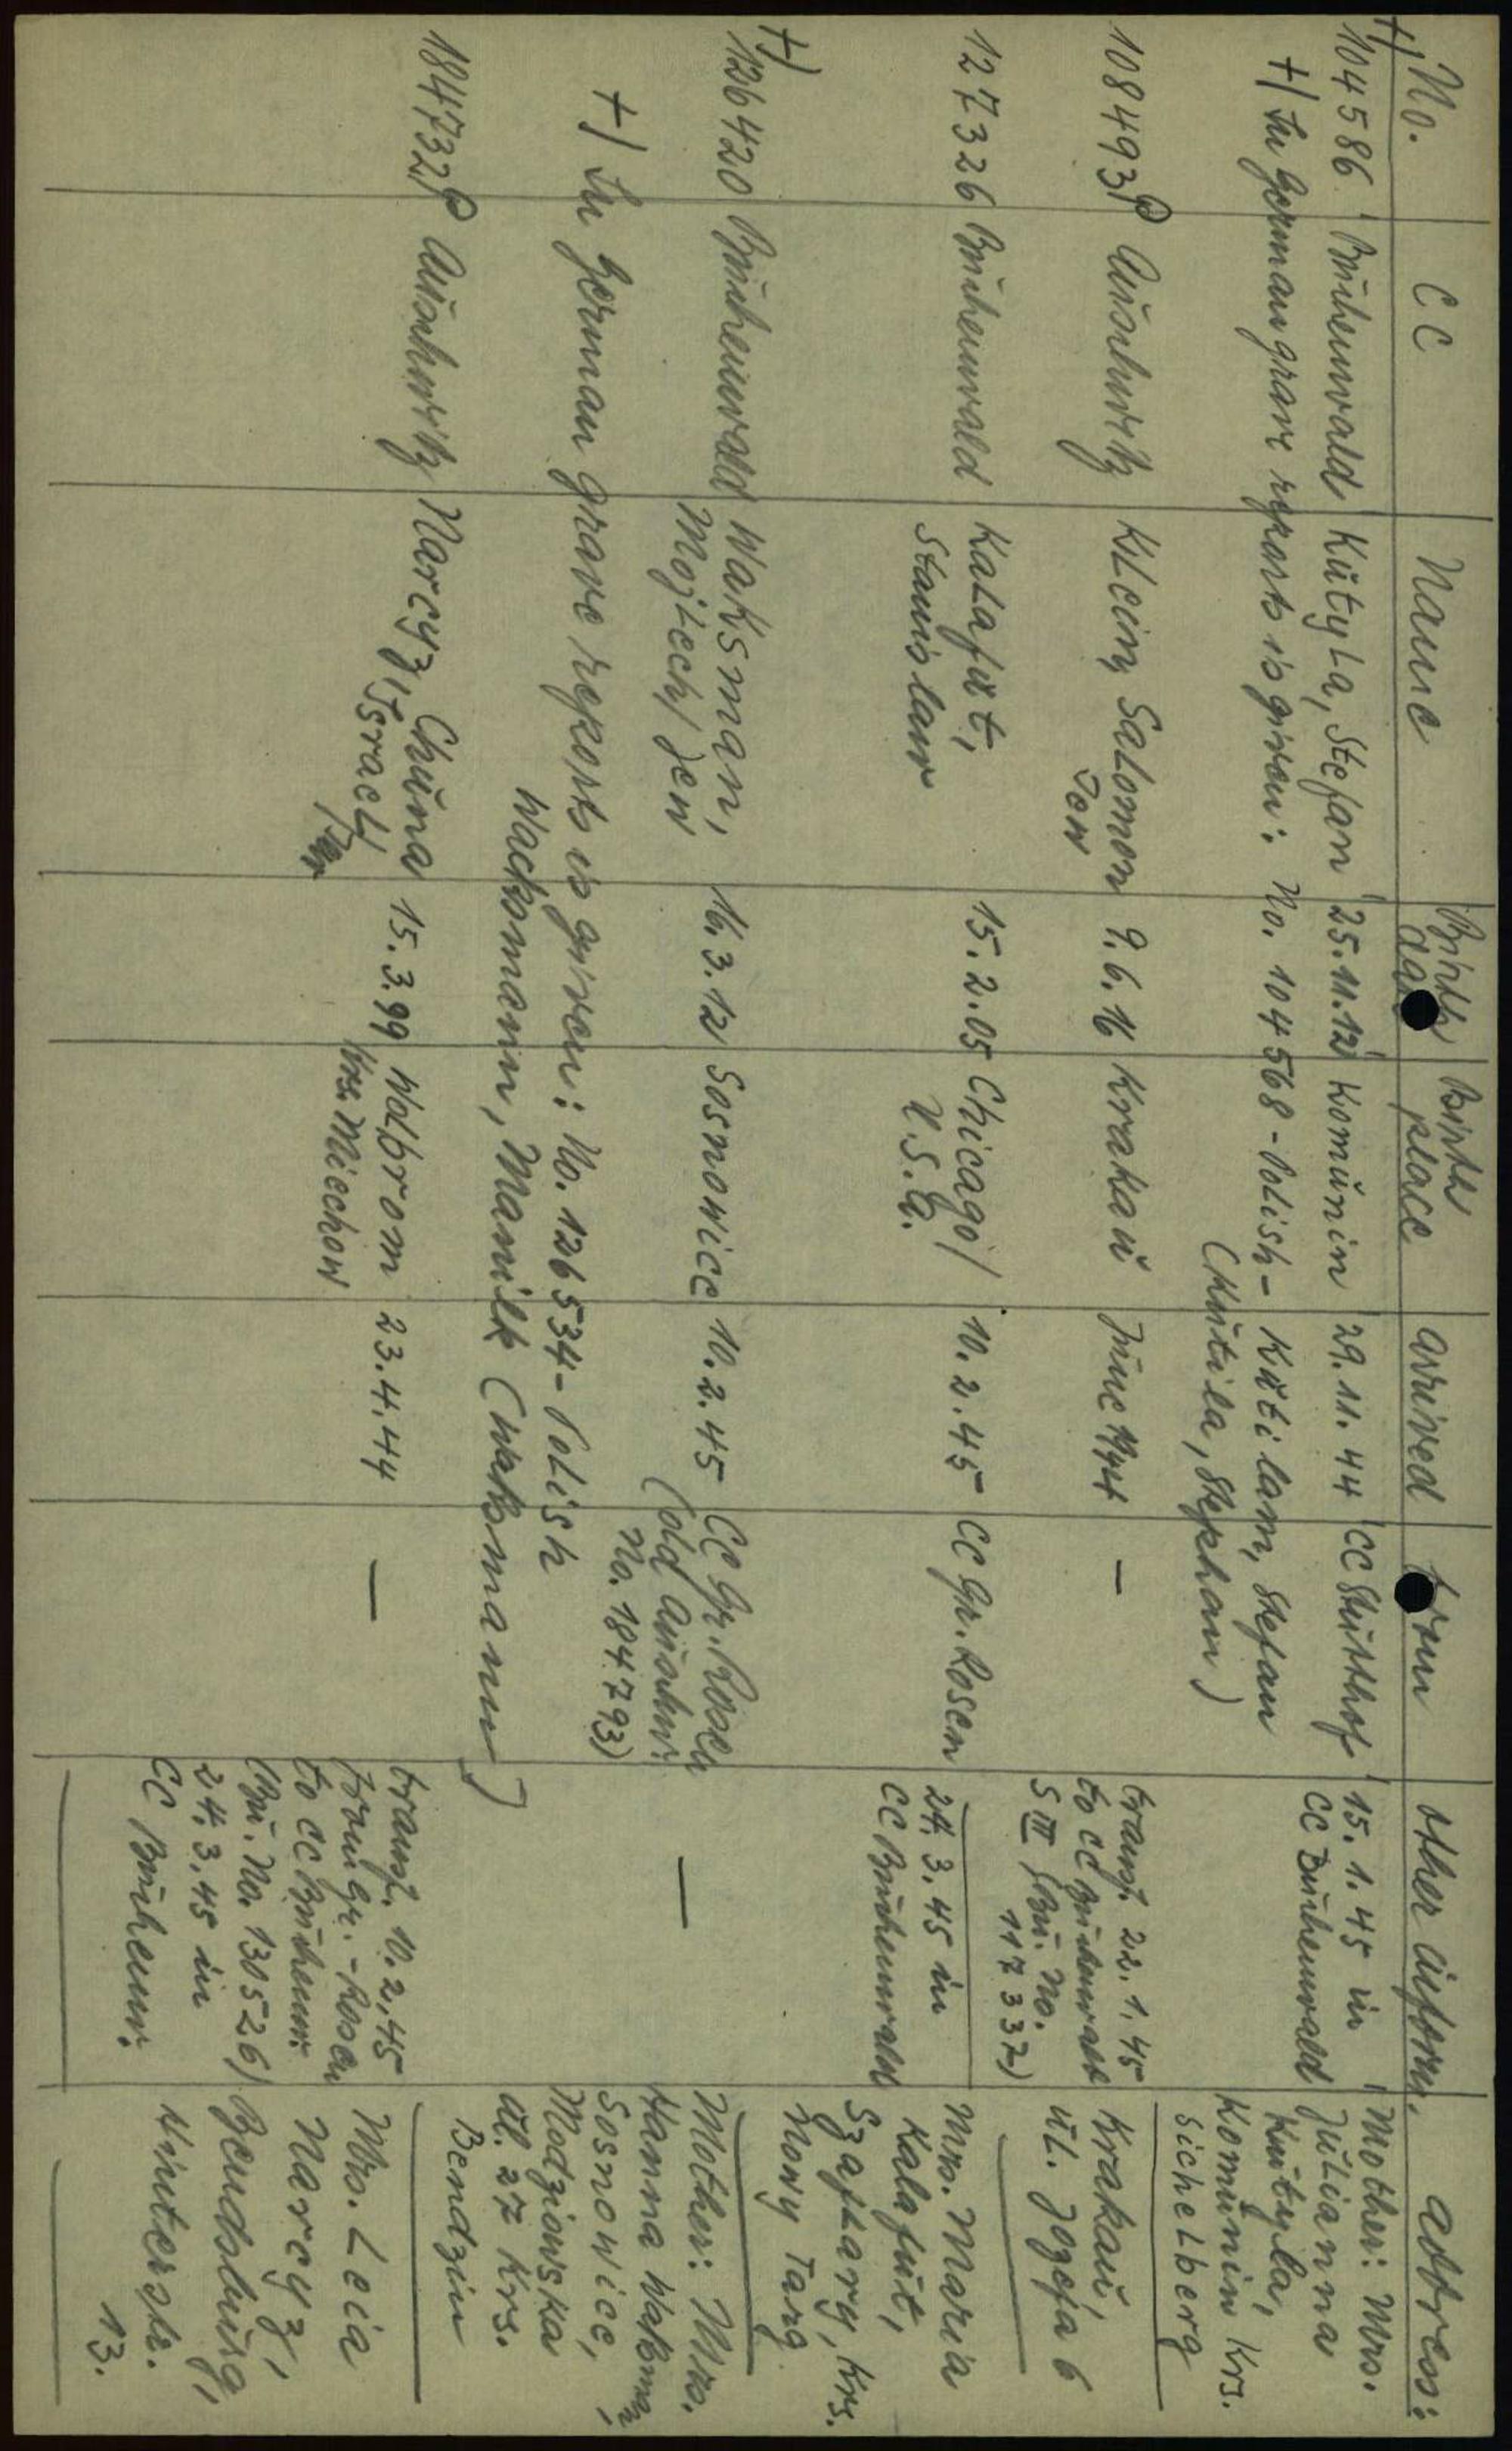 No. CC Name Birth date Birth place arrived from other inform. address:
+) 104586 Buchenwald Kutyla, Stefan 25.11.12 Komunin 29.11.44 CC Stutthof 15.1.45 in CC Buchenwald Mother: Mrs. Julianna Kutyla, Komunin Krs. Sichelberg
+) In German grave reports is given: No. 104568 - Polish - Kutilam, Stefan
(Kutila, Stephan)
108493 Auschwitz Klein, Salomon Jew 9.6.16 Krakau June 1944 - transf. 22.1.45 to CC Buchenwald S III (Bu. No. 117337) Krakau, ul. Jozefa 6
127326 Buchenwald Kalafut, Stanislaw 15.2.05 Chicago/ U.S.A. 10.2.45 CC Gr. Rosen 24.3.45 in CC Buchenwald Mrs. Maria Kalafut, Szaflary, Krs. Nowy Targ
+) 126420 Buchenwald Waksman, Mojlech/Jew 16.3.12 Sosnowice 10.2.45 CC Gr. Rosen (old Auschw. No. 184793) - Mother: Mrs. Hanna Waksman, Sosnowice, Modziowska ul. 27 Krs. Bendzin
+) In German grave reports is given: No. 126534 - Polish
Wacksmann, Manilk (Waksmann)
184732 Auschwitz Narcyz, Chuna Israel, Jew 15.3.99 Wolbrom Krs. Miechow 23.4.44 - transf. 10.2.45 from Gr.-Rosen to CC Buchenw. (Bu. No. 130526) 24.3.45 in CC Buchenw. Mrs. Leia Narcyz, Bendsburg, Hinterstr. 13.